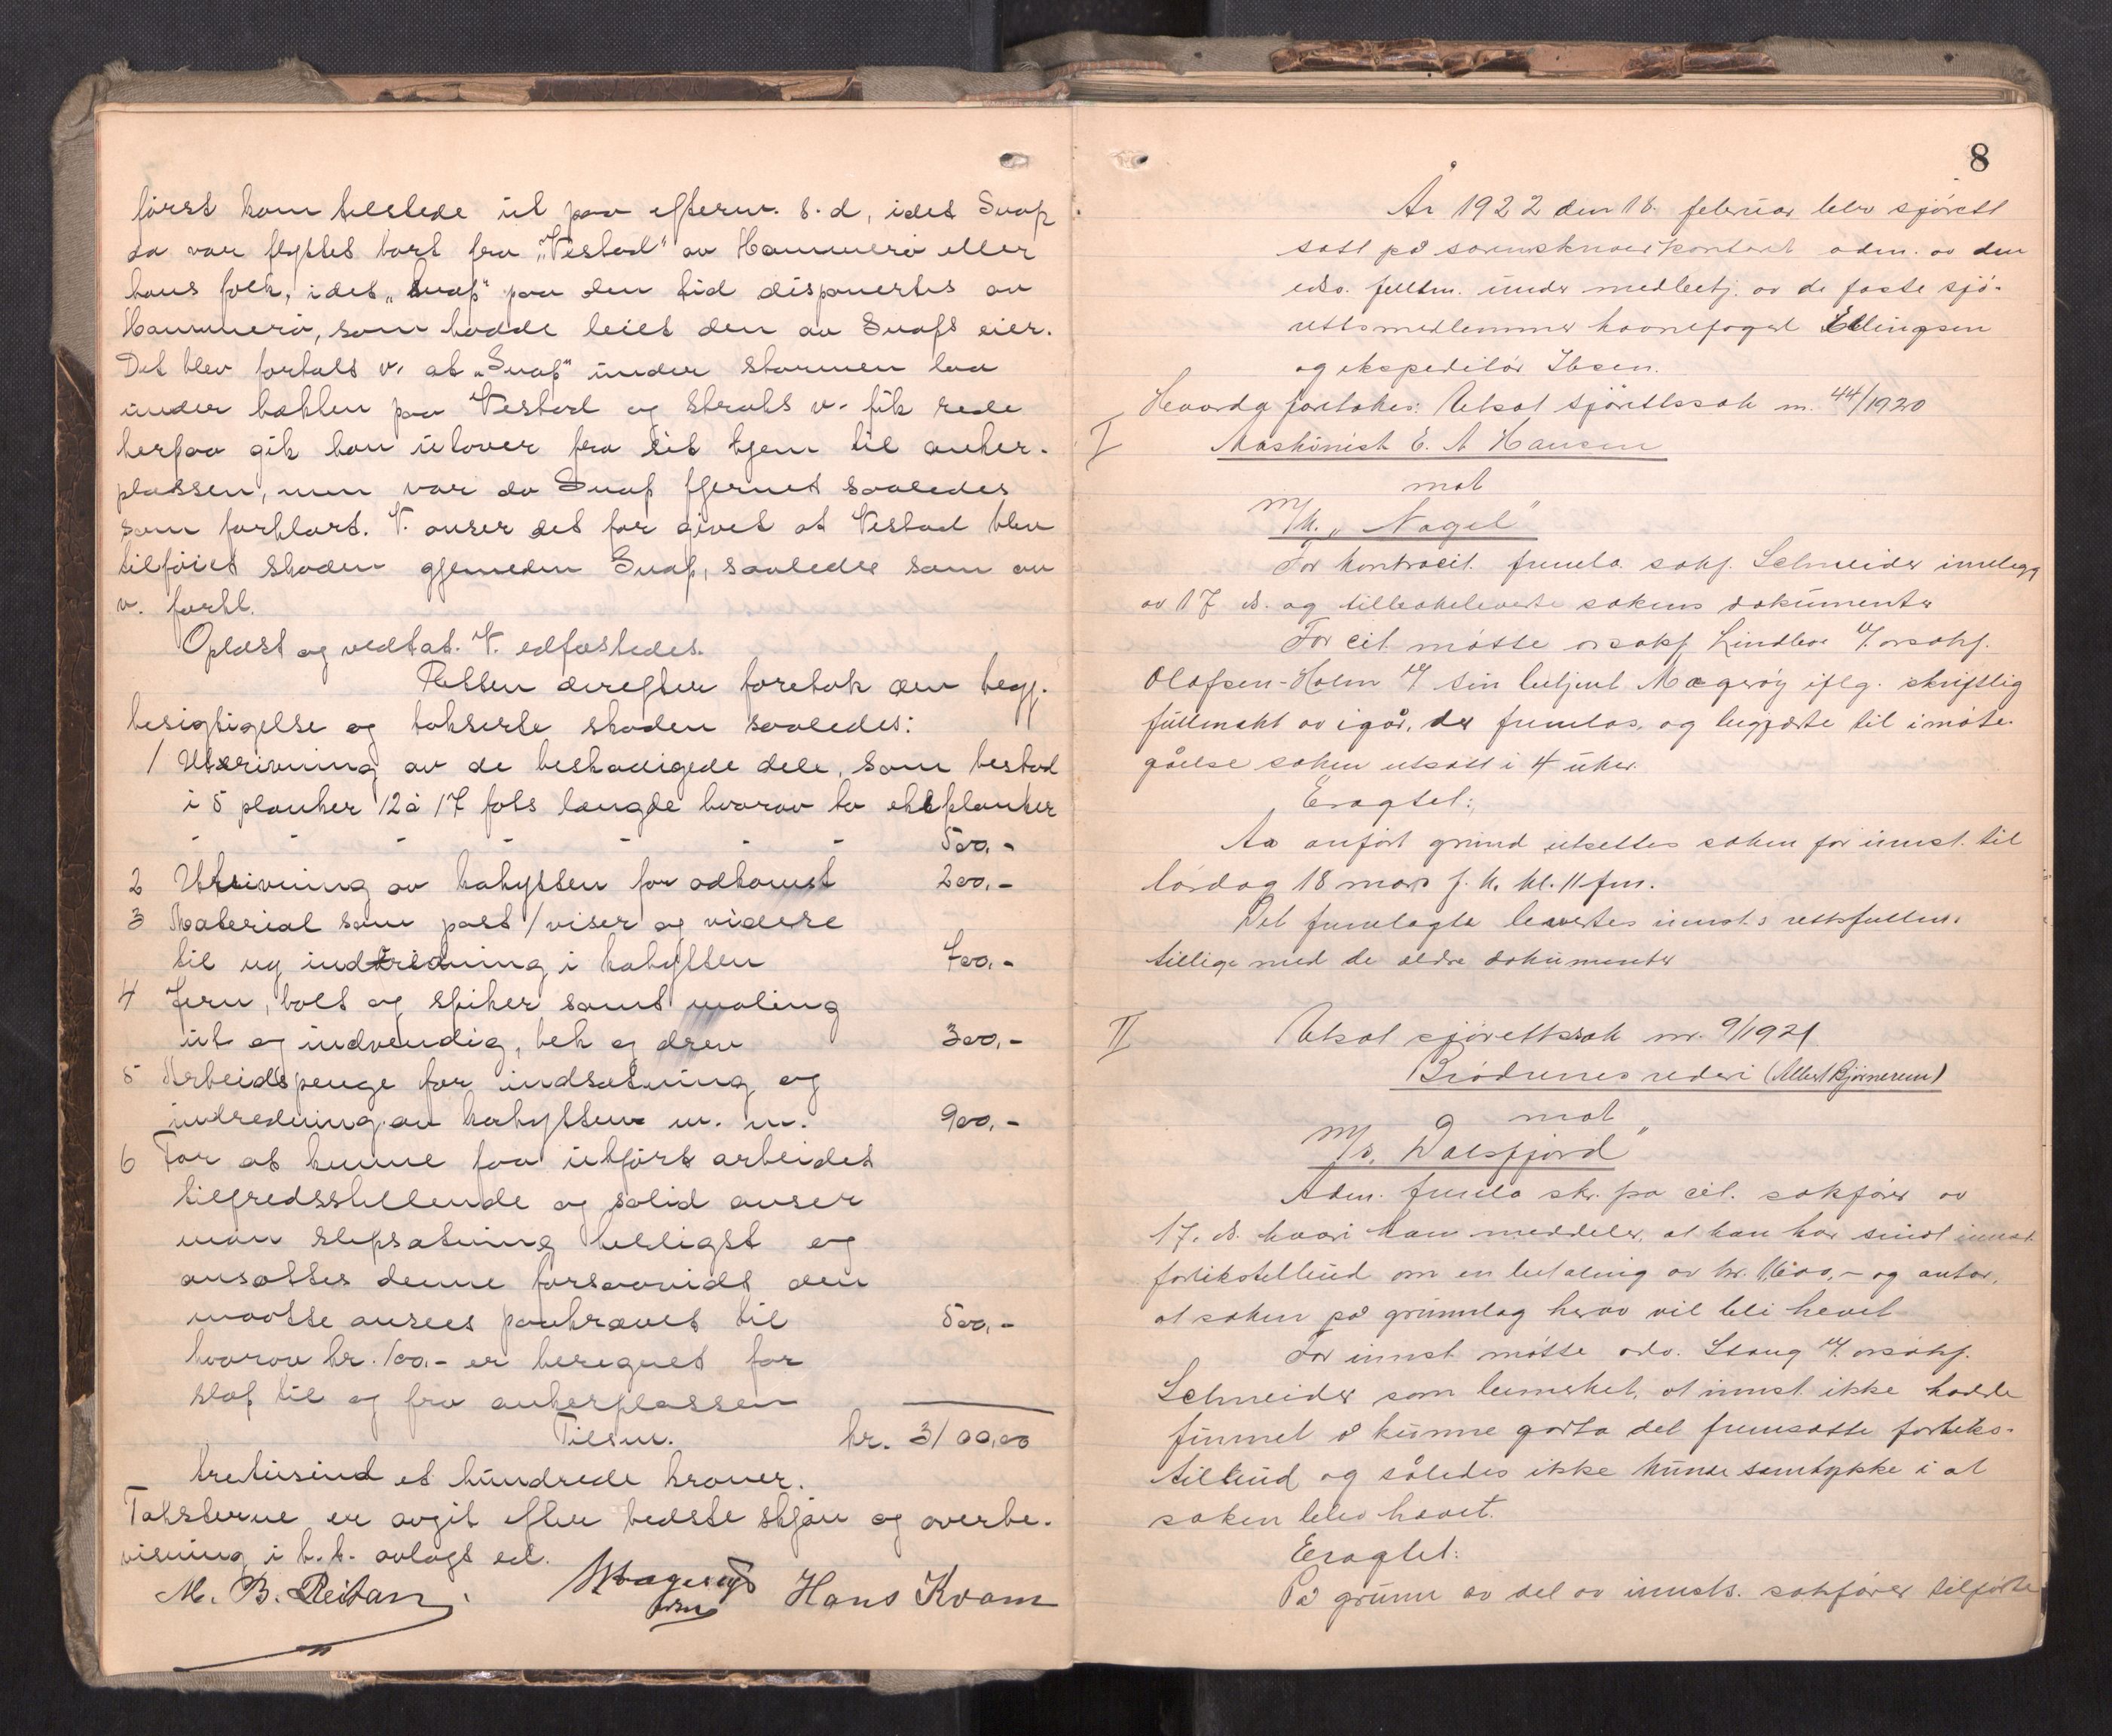 først kom tilstede ut paa efterm. s. d, idet Snap
da var flyttet bort fra "Vestad" av Hammerø eller
hans folk, idet "Snap" paa den tid disponertes av
Hammerø, som hadde leiet den av Snaps eier.
Det blev fortalt v. at "Snap" under stormen laa
under bakken paa Vestad og straks v. fik rede
herpaa gik han utover fra sit hjem til anker-
plassen, men var da Snap fjernet saaledes
som forklart. V. anser det for givet at Vestad blev
tilføiet skaden gjennem Snap, saaledes som av
v. forkl.
Oplæst og vedtat. V. edfæstedes.
Retten derefter foretok den begj.
besigtigelse og takserte skaden saaledes:
1 Utrivning av de beskadigede dele, som bestod
i 5 planker 12 à 17 fots længde hvorav to ekeplanker
- - - - - - 500,-
2 Utrivning av kahytten for adkomst 200,-
3 Material som post 1 viser og videre
til ny indredning i kahytten 700,-
4 Jern, bolt og spiker samt maling
ut og indvendig, bek og drev 300,-
5 Arbeidspenge for indsætning og
indredning av kahytten m. m. 900,-
6 For at kunne faa utført arbeidet
tilfredsstillende og solid anser
man slipsætning heldigst og
ansættes denne forsaavidt den
maatte ansees paakrævet til 500,-
hvorav kr. 100,- er beregnet for
slæp til og fra ankerplassen
Tilsm. kr. 3100,00
tretusind et hundrede kroner.
Taksterne er avgit efter bedste skjøn og overbe-
visning i h. t. avlagt ed.
M. B. Reitan. Hans Kvam
8
År 1922 den 18. februar blev sjørett
satt på sorenskriverkontoret adm. av den
eds. fullm. under medbetj. av de faste sjø-
rettsmedlemmer havnefoged Ellingsen
og ekspeditør Ibsen.
Hvorda foretokes: Utsat sjørettssak nr. 44/1920
I Maskinist E. A Hansen
mot
M/k. "Nagel"
For kontracit. fremla sakf. Schneider innlegg
av 17 ds. og tilbakeleverte sakens dokumenter
For cit. møtte orsakf. Lindboe v/ orsakf.
Olafsen-Holm v/ sin betjent Magerøy iflg. skriftlig
fullmakt av igår, der fremlas, og begjærte til imøte-
gåelse saken utsatt i 4 uker.
Eragtet:
Av anført grund utsettes saken for innst. til
lørdag 18 mars f. k. kl. 11 fm.
Det fremlagte levertes innst.s rettsfullm.
tillige med de eldre dokumenter
II Utsat sjørettssak nr. 9/1921
Brødrenes rederi (Albert Bjørnerem)
mot
M/s. "Dalsfjord"
Adm. fremla skr. fra cit. sakfører av
17. ds. hvori han meddeler, at han har sendt innst.
forlikstilbud om en betaling av kr. 1600,- og antar,
at saken på grunnlag herav vil bli hevet
For innst. møtte adv. Stang v/ orsakf.
Schneider som bemerket, at innst. ikke hadde
funnet å kunne godta det fremsatte forliks-
tilbud og således ikke kunde samtykke i at
saken blev hævet.
Eragtet:
På grunn av det av innsts. sakfører tilførte